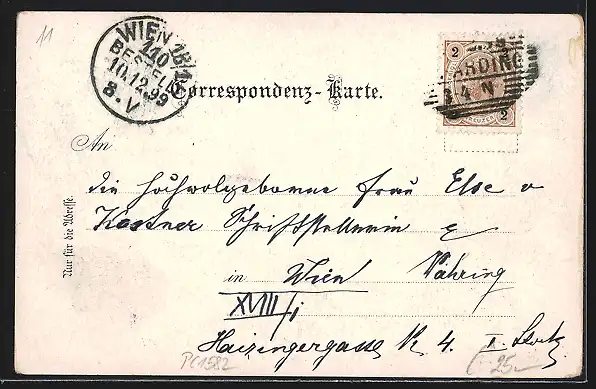 11
WIEN 18/1
110
BESTELLT
10.12.99
8.V
Correspondenz-Karte.
2 2
ARDING
4 N
2
An
die hochwolgeborne Frau Else v
Kastner Schriftstellerin
Nur für die Adresse.
in Wien Währing
XVIII/1
Haizingergasse Nr 4. I. Stock
PC1582
25.-